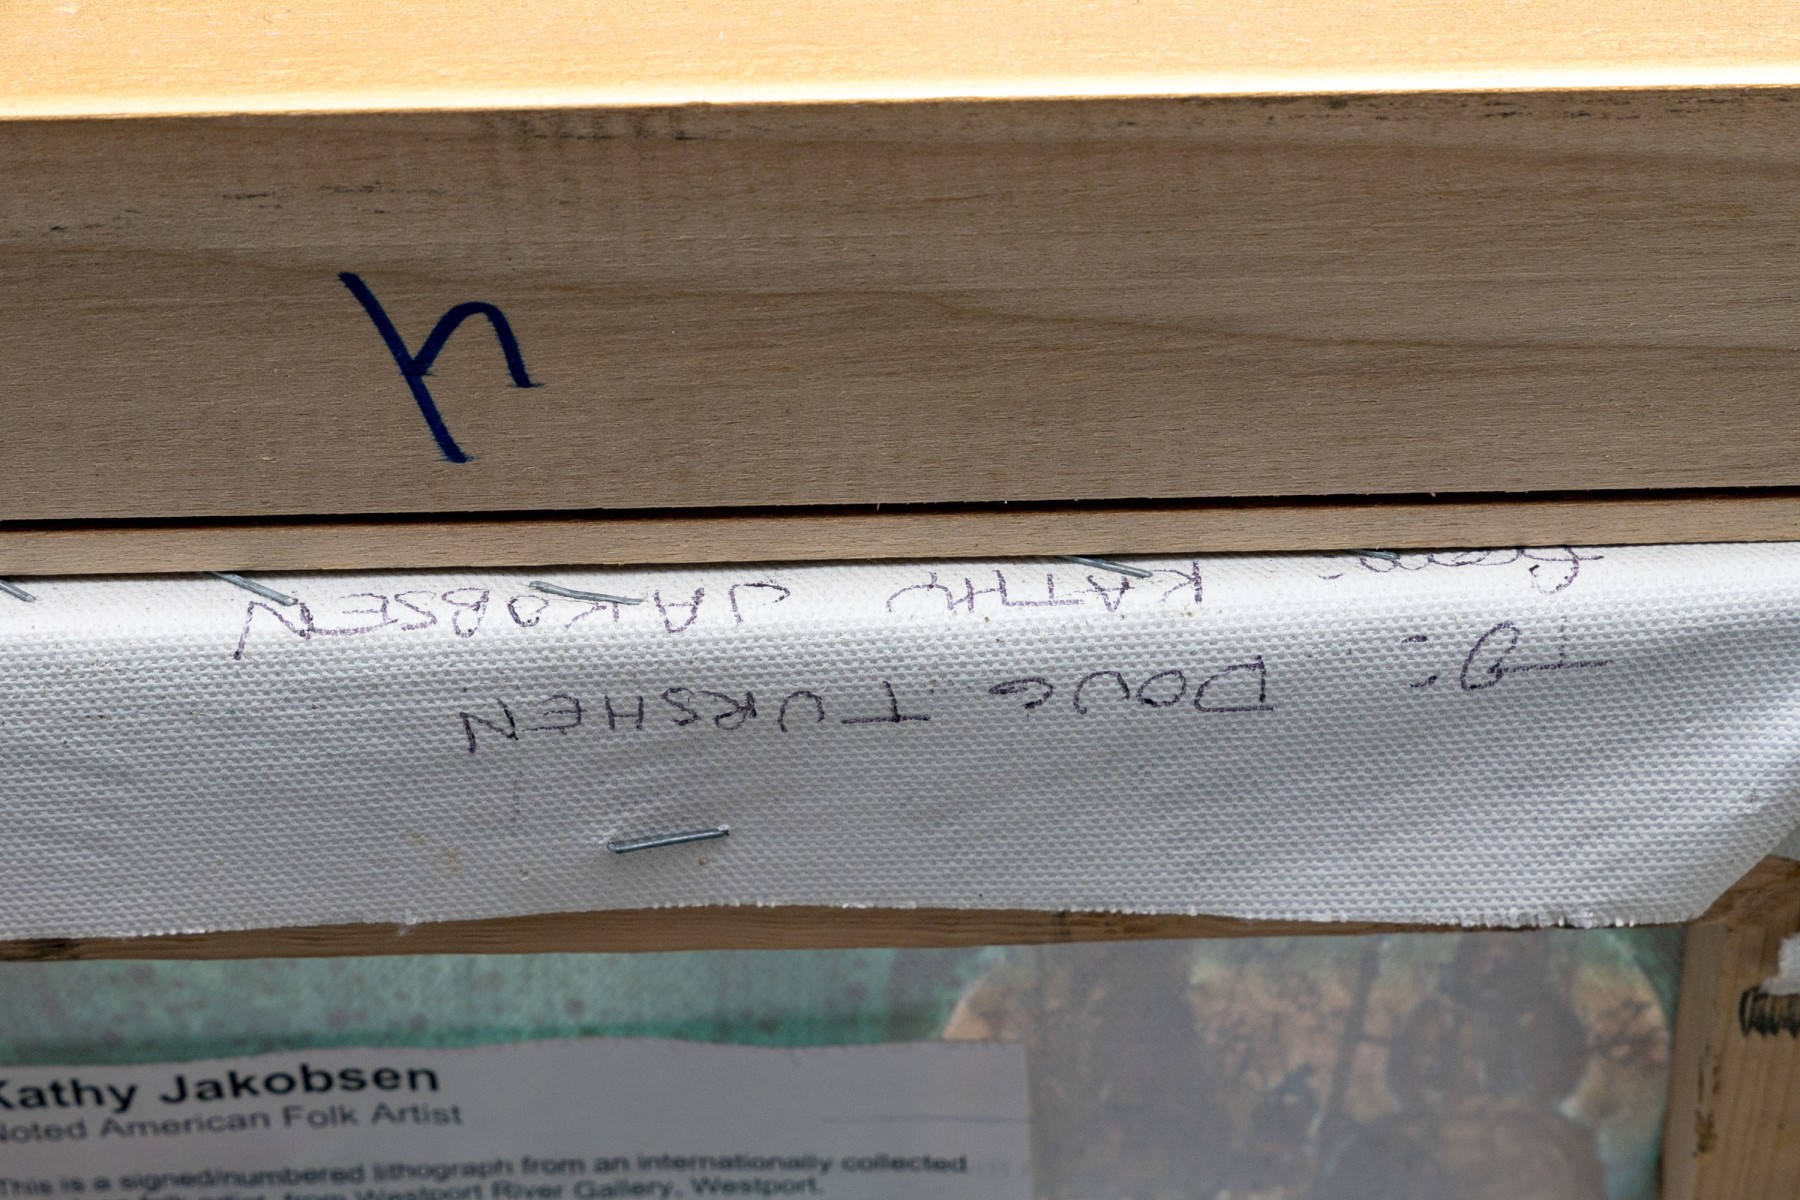 To: DOUG TURSHEN
From: KATHY JAKOBSEN
Kathy Jakobsen
Noted American Folk Artist
This is a signed/numbered lithograph from an internationally collected
folk artist, from Westport River Gallery, Westport.